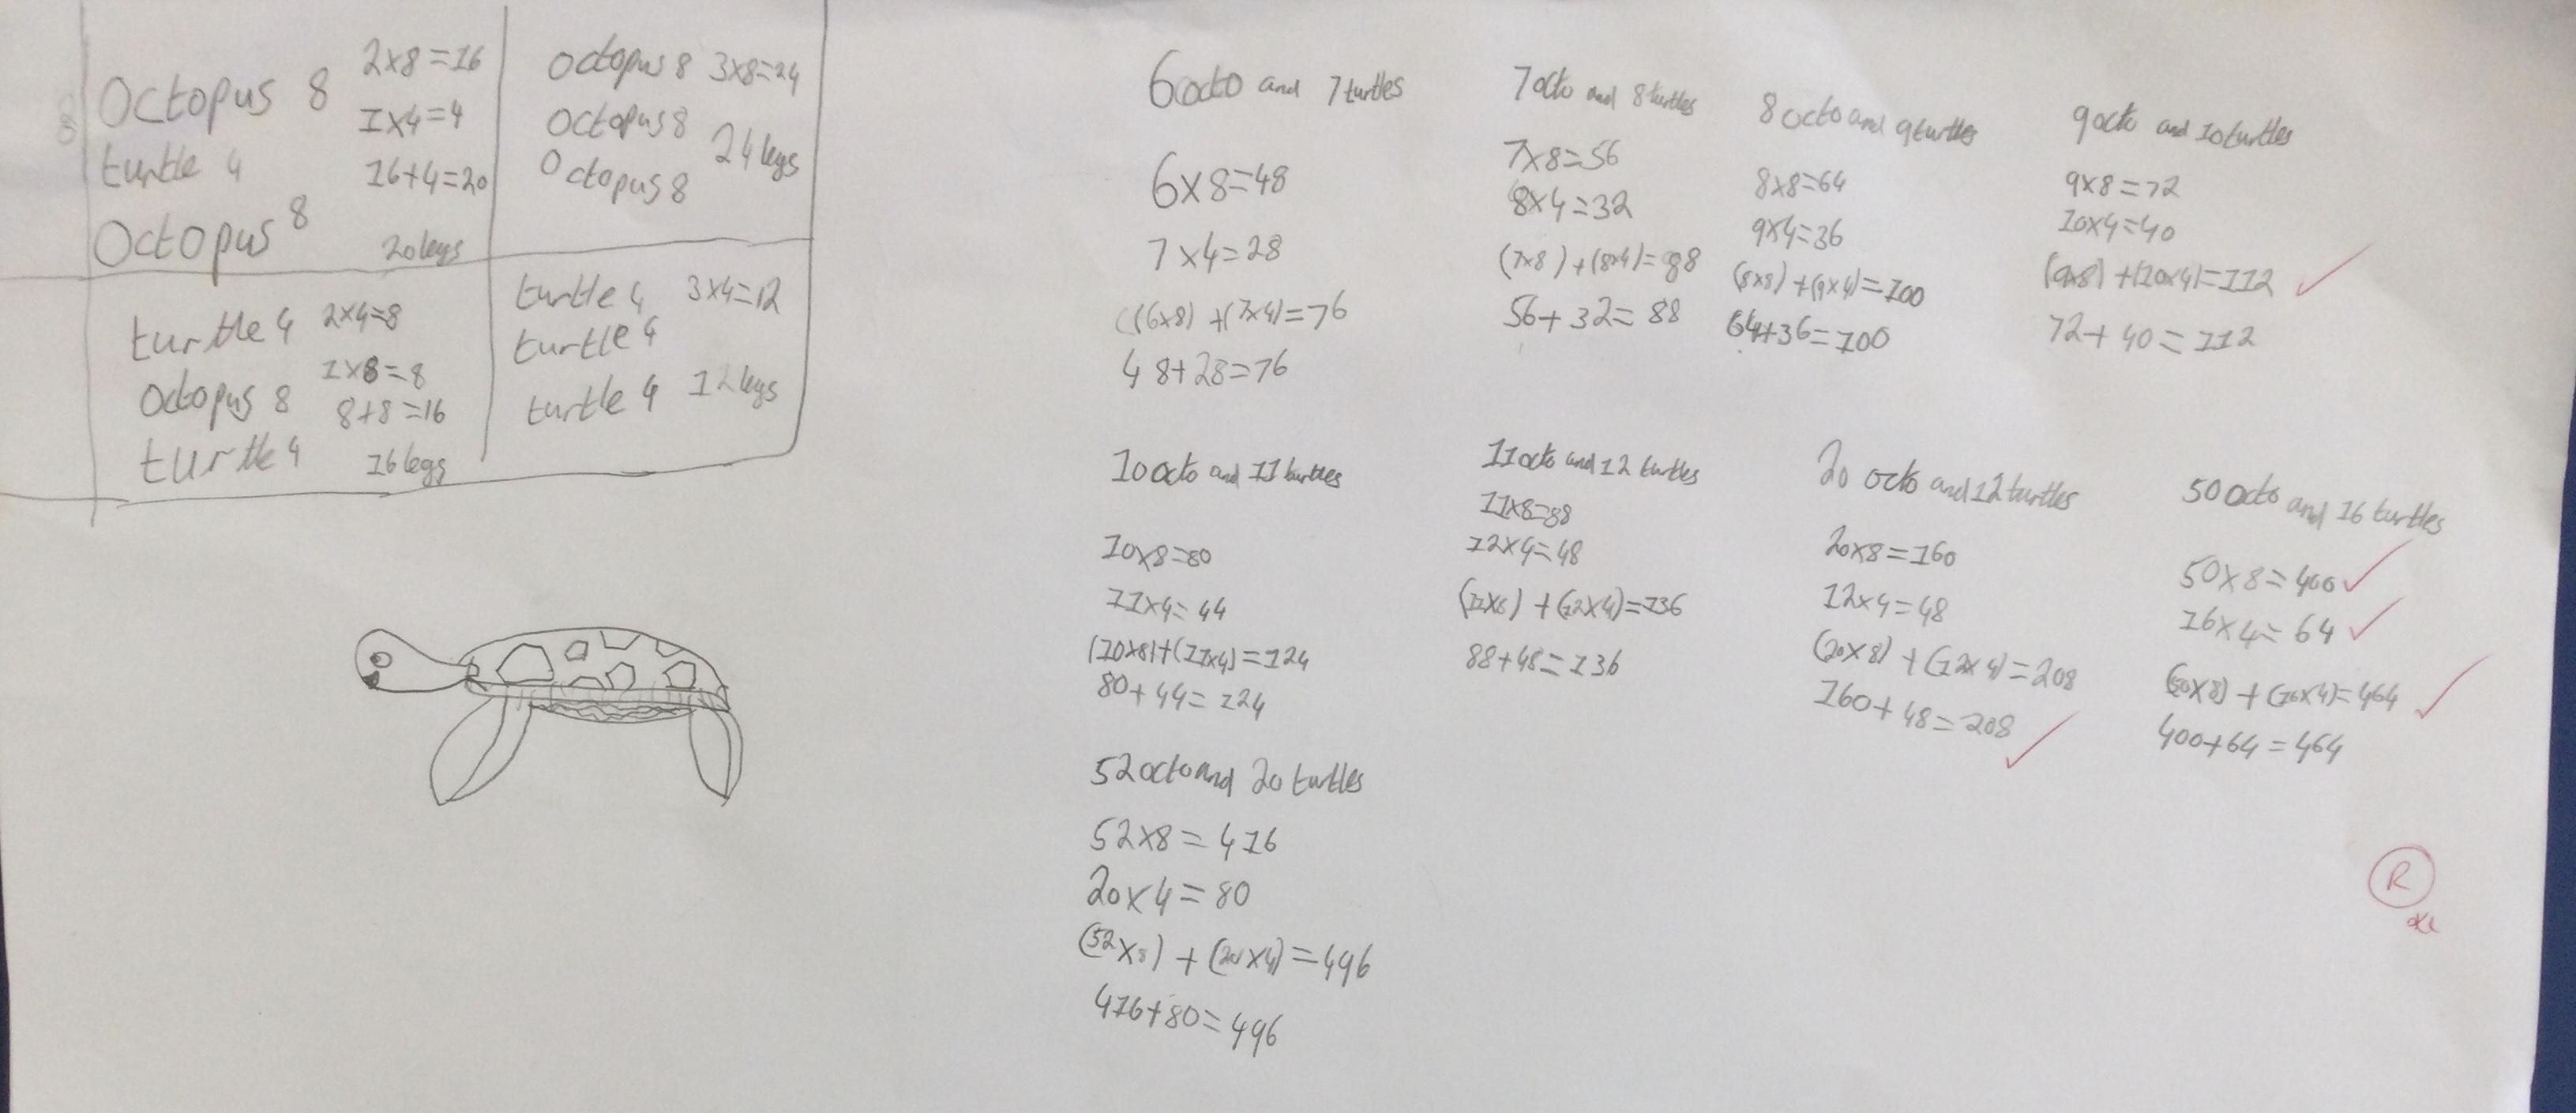 Octopus 8 2x8=16
1x4=4
turtle 4 16+4=20
Octopus 8 20legs
Octopus 8 3x8=24
Octopus 8
24legs
Octopus 8
turtle 4 2x4=8
1x8=8
Octopus 8 8+8=16
turtle 4 16legs
turtle 4 3x4=12
turtle 4
turtle 4 12legs
6octo and 7turtles
6x8=48
7x4=28
((6x8) +(7x4)=76
48+28=76
7octo and 8turtles
7x8=56
8x4=32
(7x8) +(8x4)=88
56+32=88
8octo and 9turtles
8x8=64
9x4=36
(8x8) +(9x4)=100
64+36=100
9octo and 10turtles
9x8=72
10x4=40
(9x8) +(10x4)=112
72+40=112
10octo and 11turtles
10x8=80
11x4=44
(10x8)+(11x4)=124
80+44=124
11octo and 12 turtles
11x8=88
12x4=48
(11x8) +(12x4)=136
88+48=136
20 octo and 12turtles
20x8=160
12x4=48
(20x8) +(12x4)=208
160+48=208
50octo and 16 turtles
50x8=400
16x4=64
(50x8) +(16x4)=464
400+64=464
52octo and 20 turtles
52x8=416
20x4=80
(52x8) +(20x4)=496
416+80=496
R